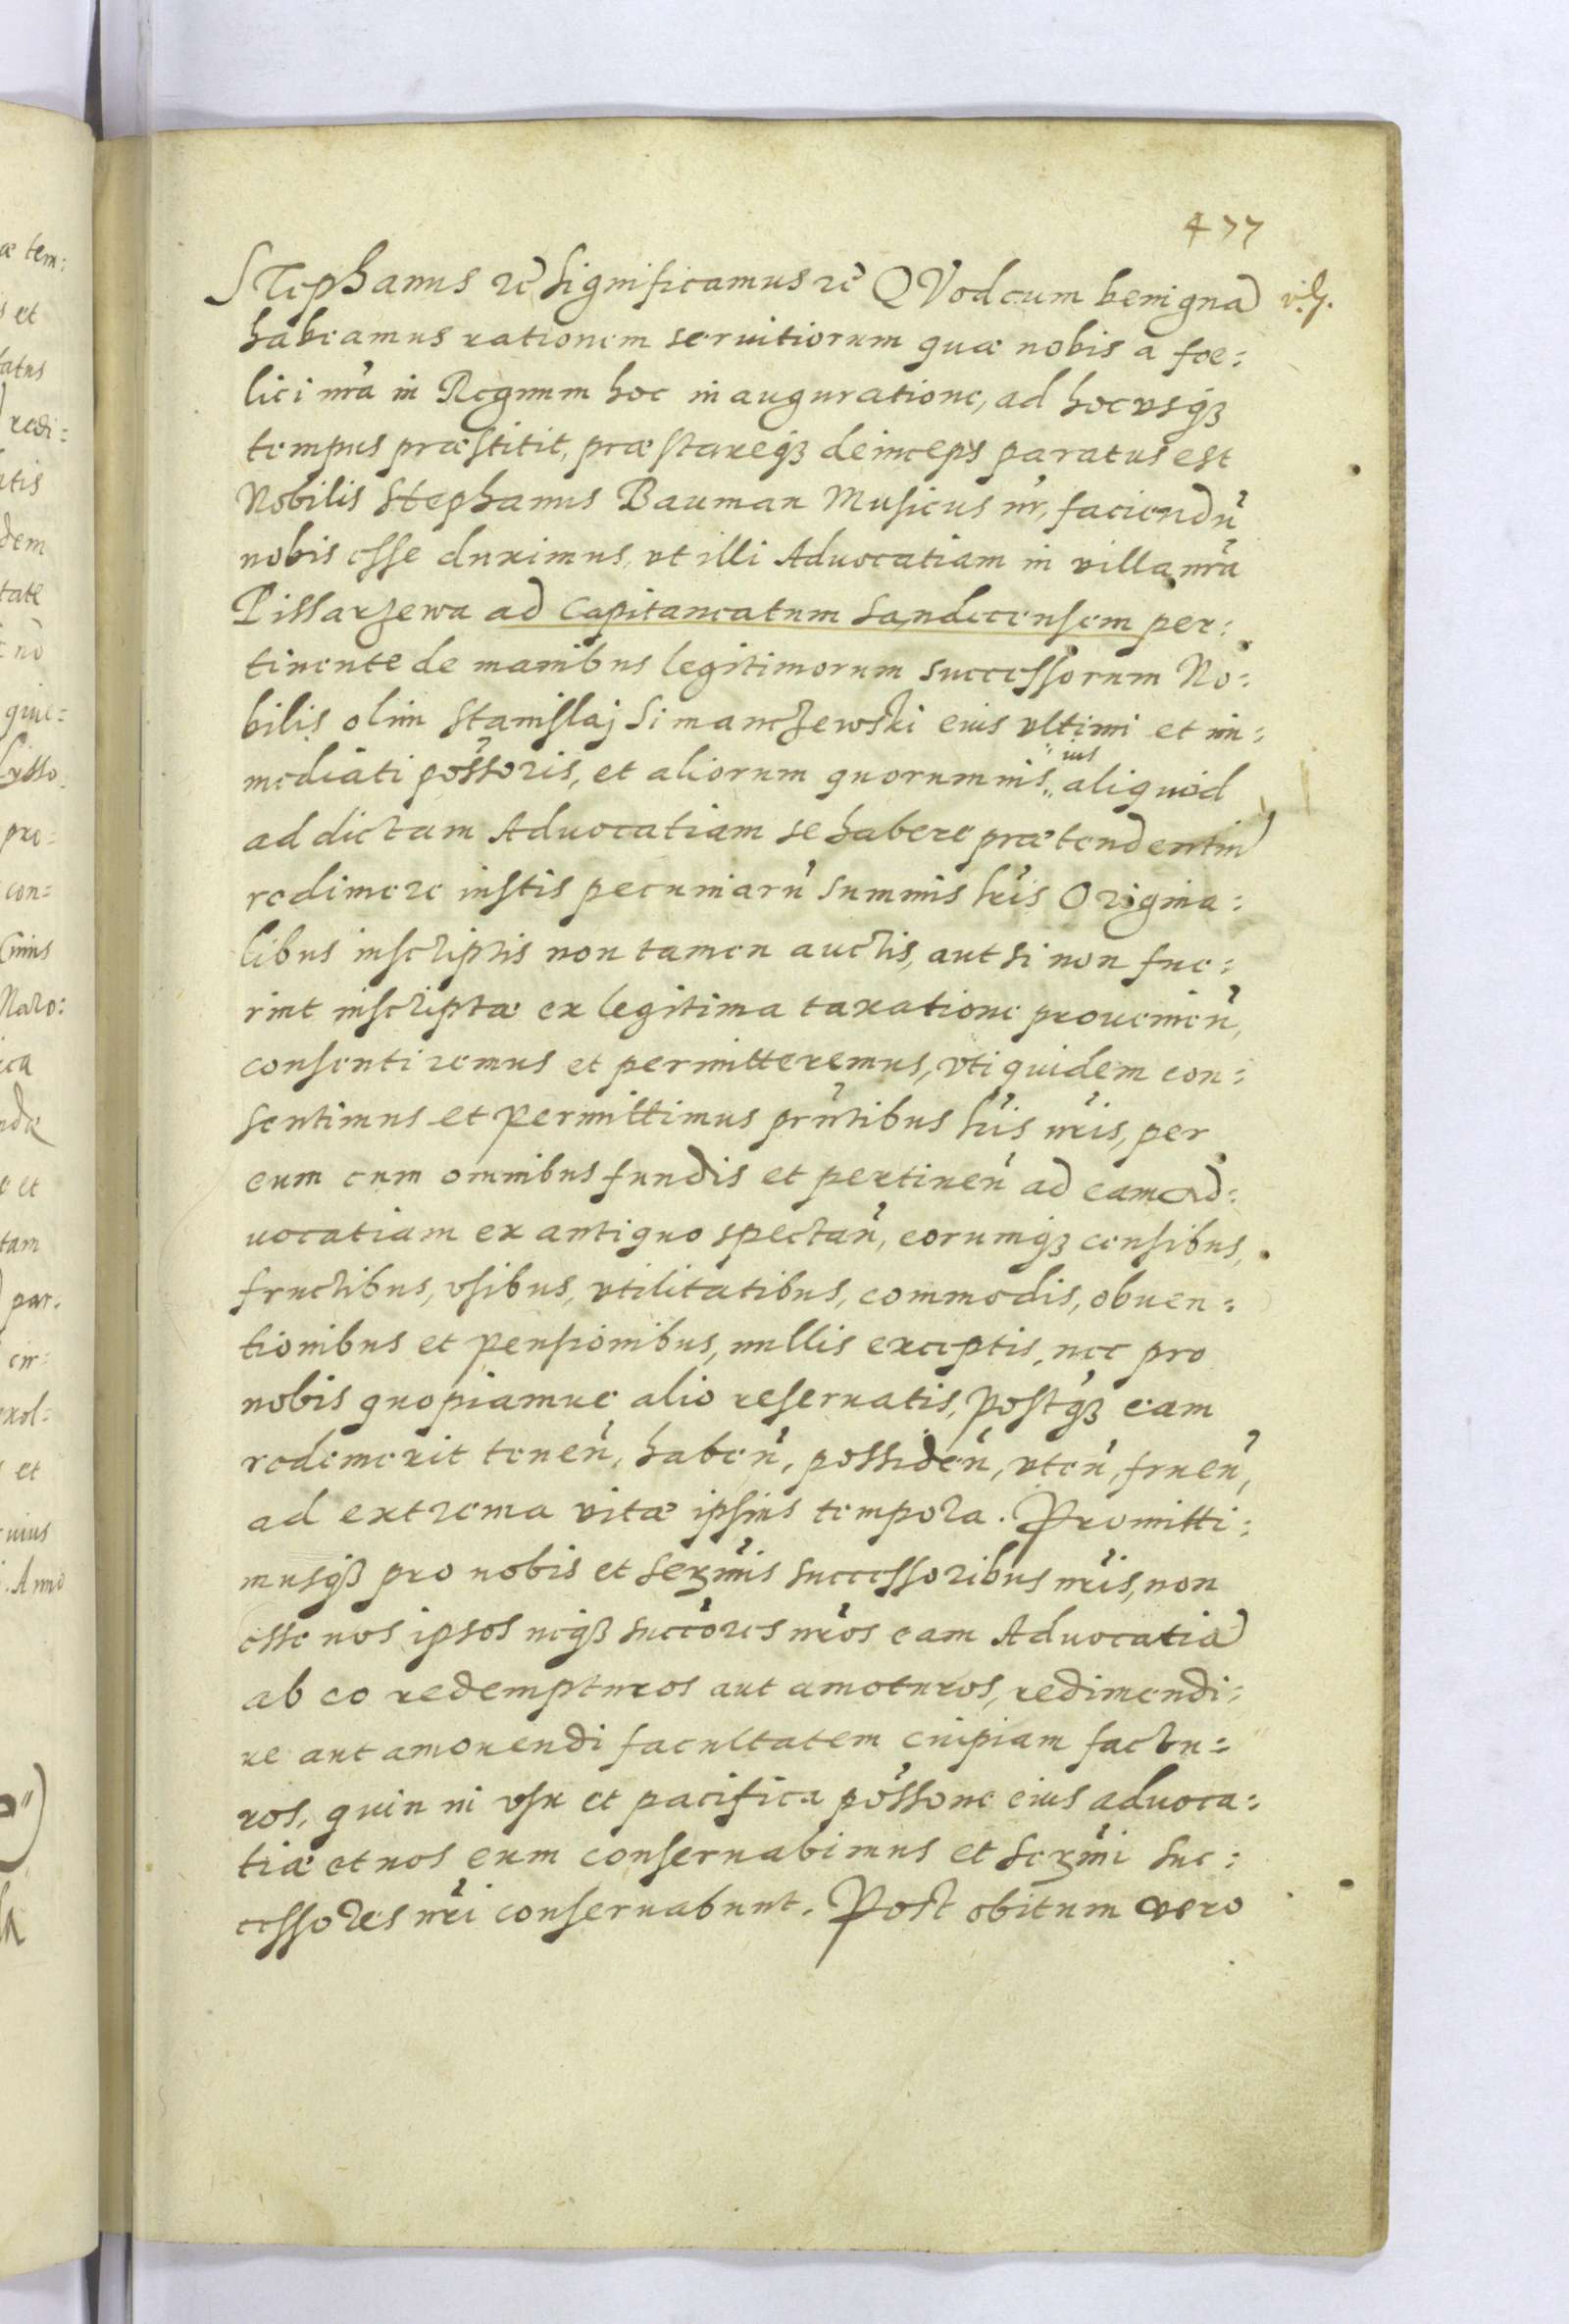 477
Stephanus rc̄ Significamus rc̄ QVod cum benignā
habeamus rationem seruitiorum quæ nobis a foe:
lici nr̄a in Regnum hoc inauguratione, ad hoc vsqȝ
tempus præstitit, præstareqȝ deinceps paratus est
Nobilis Stephanus Bauman Musicus nr̄, faciendū
nobis esse duximus, vt illi Aduocatiam in villa nr̄a
Pissarzewa ad Capitaneatum Sandecensem per:
tinente de manibus legitimorum successorum No:
bilis olim Stanislaj Simanczewski eius vltimi et im:
mediati pōssoris, et aliorum quorumuis ius aliquod
ad dictam Aduocatiam se habere prætendentiū
redimere iustis pecuniarū summis lr̄is Origina:
libus inscriptis non tamen auctis, aut si non fue:
rint inscriptæ ex legitima taxatione prouenien̄,
consentiremus et permitteremus, vti quidem con:
sentimus et permittimus prn̄tibus lr̄is nr̄is, per
eum cum omnibus fundis et pertinen̄ ad eam Ad:
uocatiam ex antiquo spectan̄, eorumqȝ censibus,
fructibus, vsibus, vtilitatibus, commodis, obuen:
tionibus et pensionibus, nullis exceptis, nec pro
nobis quopiamue alio reseruatis, postqȝ eam
redemerit tenen̄, haben̄, possiden̄, vten̄, fruen̄,
ad extrema vitæ ipsius tempora. Promitti:
musqȝ pro nobis et Serm̄is successoribus nr̄is, non
esse nos ipsos neqȝ succōres nr̄os eam Aduocatiā
ab eo redempturos aut amoturos, redimendi:
ue aut amouendi facultatem cuipiam factu:
ros, quin in vsu et pacifica pōssone eius aduoca:
tiæ et nos eum conseruabimus et Serm̄i suc:
cessores nr̄i conseruabunt. Post obitum vero